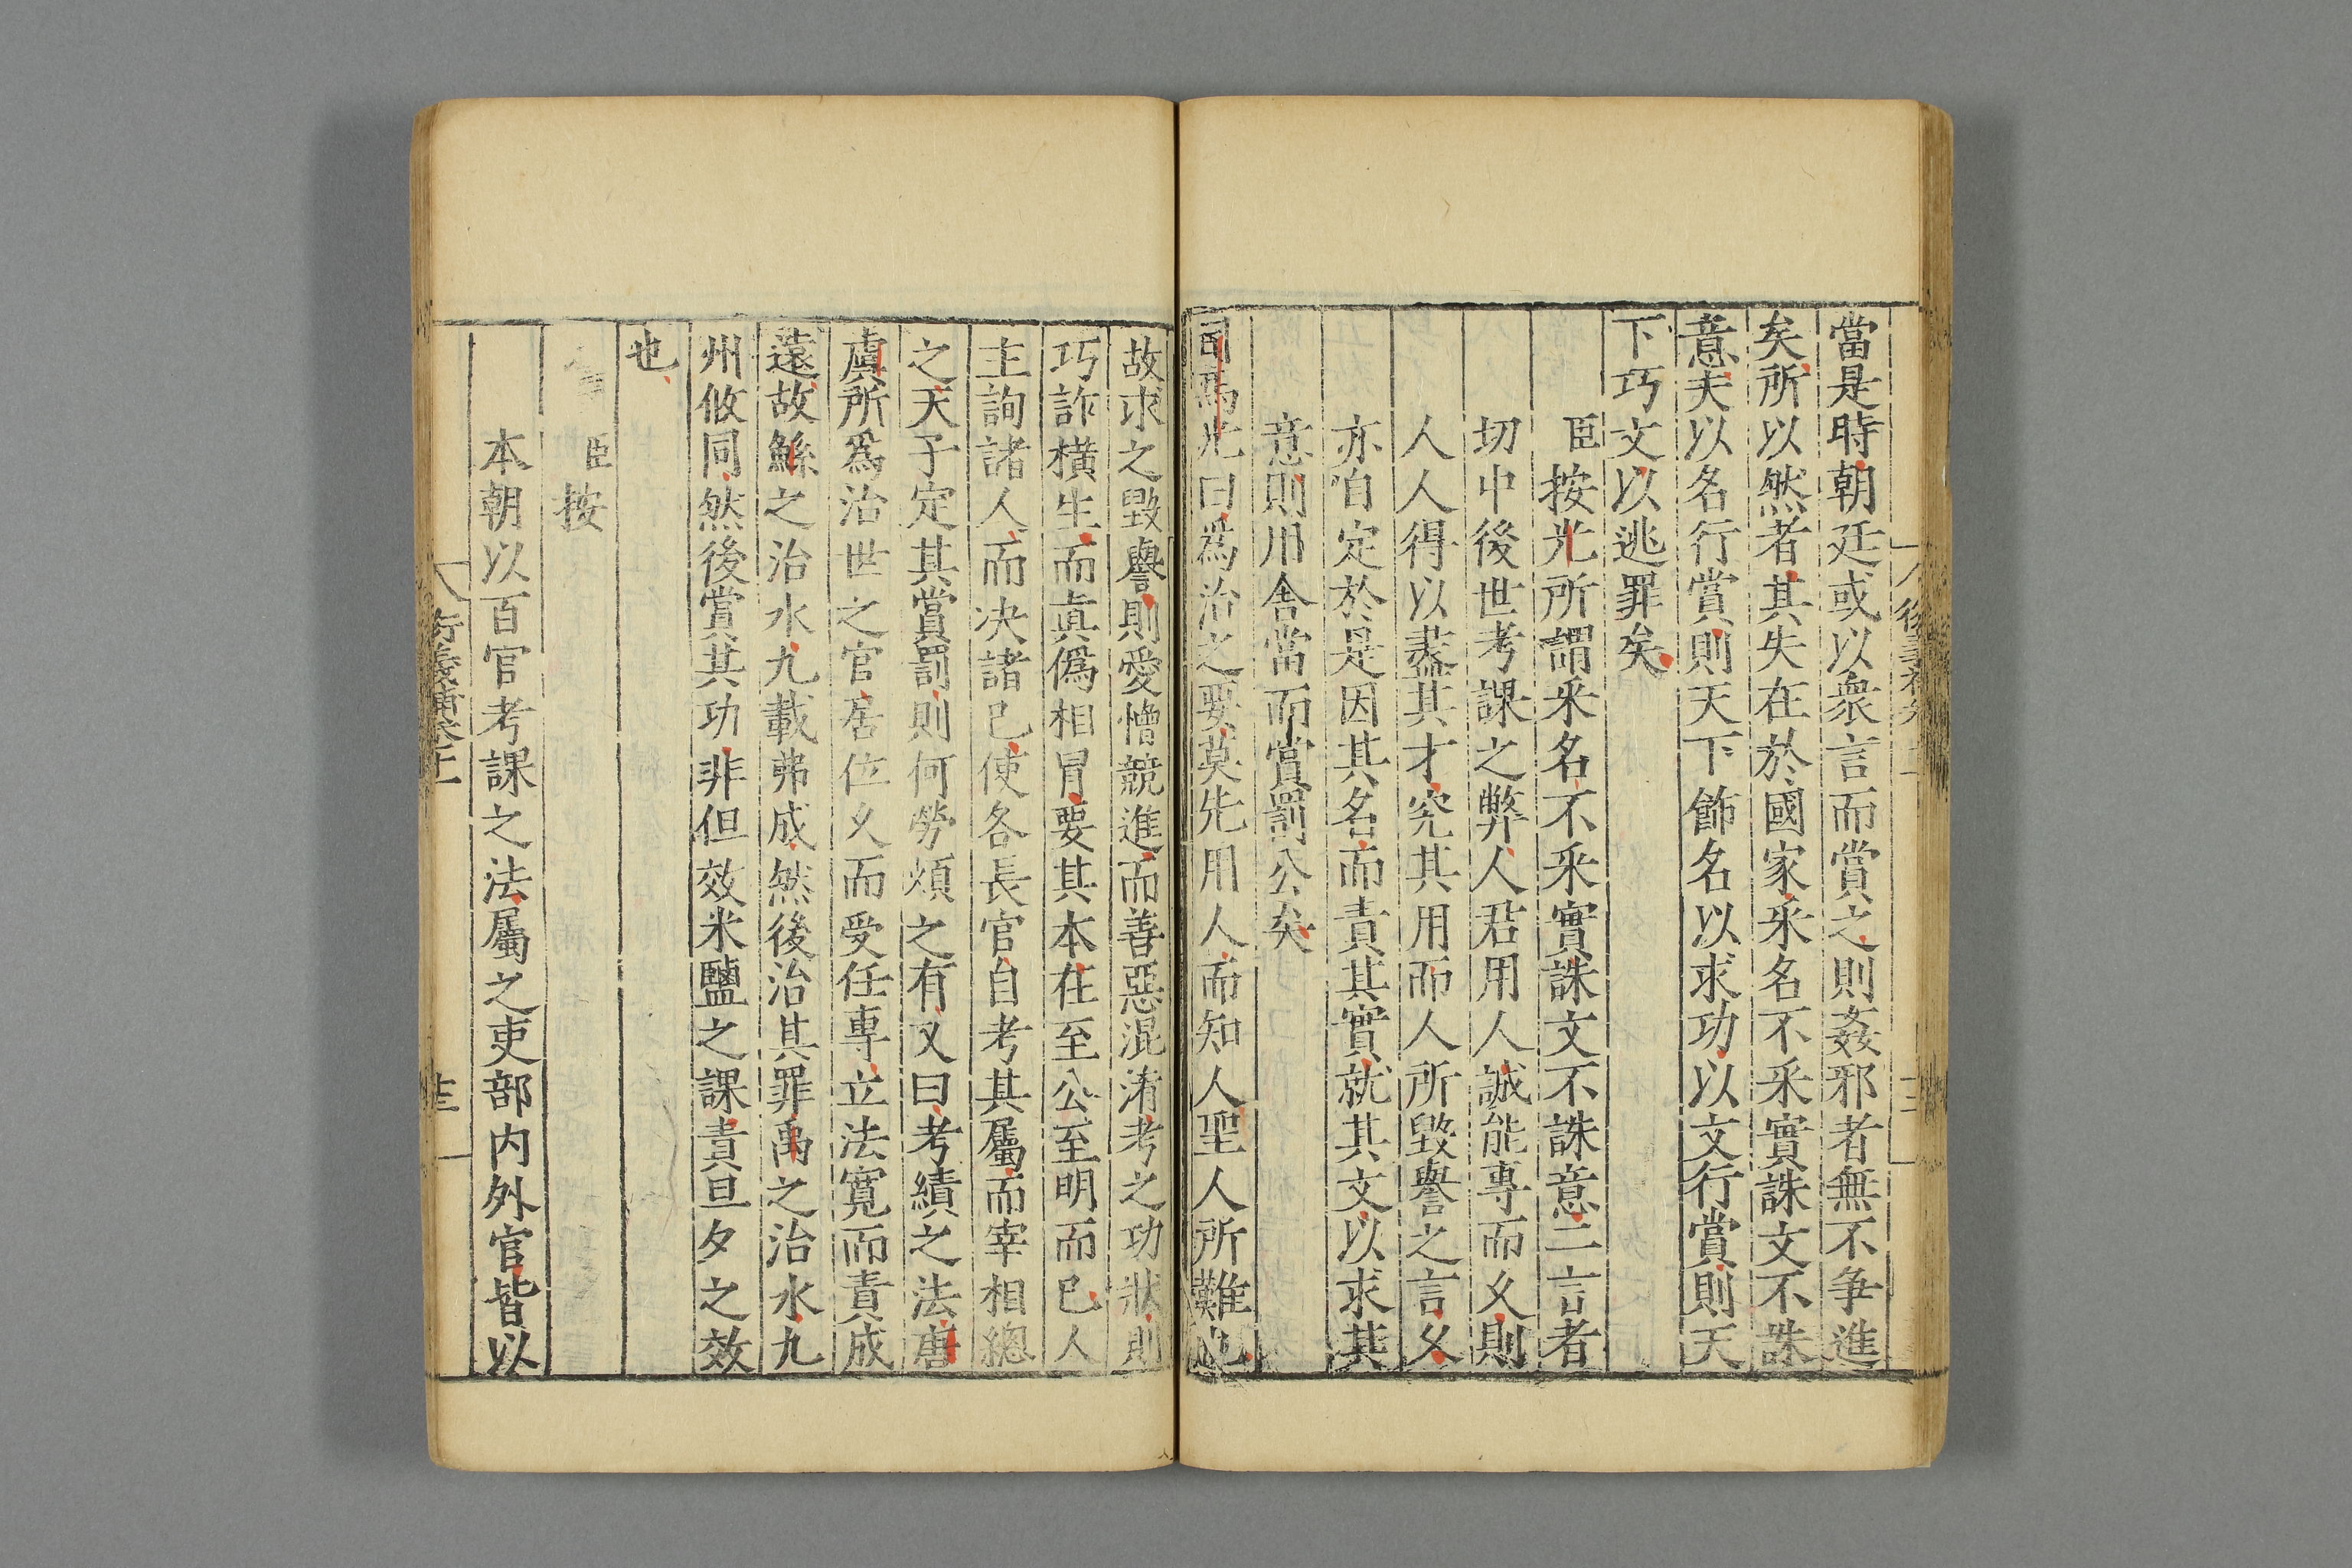 當是時朝廷或以衆言而賞之則姦邪者無不爭進
矣所以然者其失在於國家采名不采實誅文不誅
意夫以名行賞則天下飾名以求功以文行賞則天
下巧文以逃罪矣
臣按光所謂采名不采實誅文不誅意二言者
切中後世考課之弊人君用人誠能專而久則
人人得以盡其才究其用而人所毀譽之言久
亦自定於是因其名而責其實就其文以求其
意則用舍當而賞罰公矣
司馬光曰爲治之要莫先用人而知人聖人所難也
故求之毀譽則愛憎競進而善惡混淆考之功狀則
巧詐橫生而眞僞相冒要其本在至公至明而已人
主詢諸人而决諸己使各長官自考其屬而宰相總
之天子定其賞罰則何勞煩之有又曰考績之法唐
虞所爲治世之官居位久而受任專立法寬而責成
遠故鯀之治水九載弗成然後治其罪禹之治水九
州攸同然後賞其功非但效米鹽之課責旦夕之效
也
臣按
本朝以百官考課之法屬之吏部内外官皆以